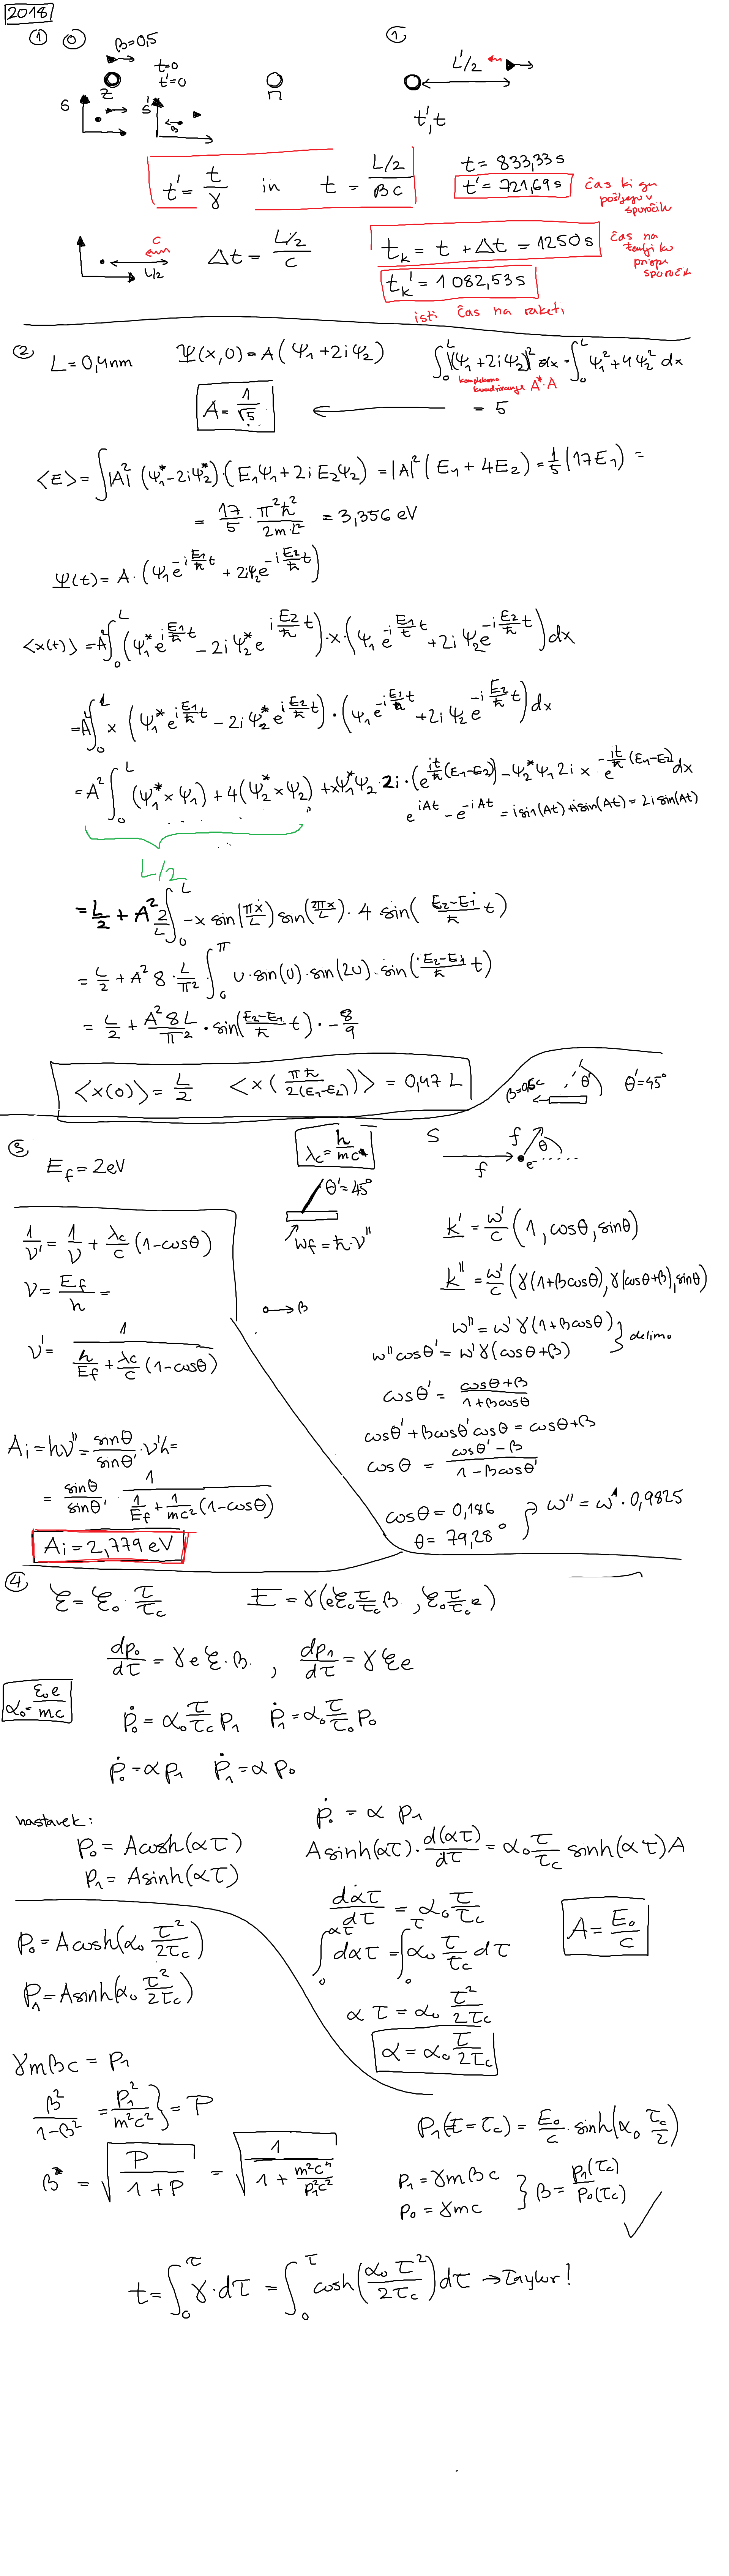 2018
① ⓪ β=0,5 ①
t=0
t'=0
L'/2
Z
S S'
β
t',t
t' = t/γ in t = (L/2)/(βc)
t = 833,33 s
t' = 721,69 s
čas ki ga pošljejo v sporočilu
c
L/2
Δt = (L/2)/c
t_k = t + Δt = 1250 s
čas na zemlji ko prispe sporočilo
t_k' = 1082,53 s
isti čas na raketi
② L = 0,4 nm Ψ(x,0) = A(Ψ₁+2iΨ₂) ∫₀ᴸ |(Ψ₁+2iΨ₂)|² dx = ∫₀ᴸ Ψ₁²+4Ψ₂² dx
kompleksno kvadriranje A*·A
A = 1/√5 ← = 5
<E> = ∫|A|² (Ψ₁*-2iΨ₂*)(E₁Ψ₁+2iE₂Ψ₂) = |A|²(E₁+4E₂) = 1/5 (17E₁) =
= 17/5 · π²ℏ²/(2m·L²) = 3,356 eV
Ψ(t) = A·(Ψ₁e^(-i E₁/ℏ t) + 2iΨ₂e^(-i E₂/ℏ t))
<x(t)> = A²∫₀ᴸ (Ψ₁* e^(i E₁/ℏ t) - 2iΨ₂* e^(i E₂/ℏ t))·x·(Ψ₁ e^(-i E₁/ℏ t) + 2iΨ₂e^(-i E₂/ℏ t)) dx
= A²∫₀ᴸ x (Ψ₁* e^(i E₁/ℏ t) - 2iΨ₂* e^(i E₂/ℏ t))·(Ψ₁ e^(-i E₁/ℏ t) + 2iΨ₂ e^(-i E₂/ℏ t)) dx
= A² ∫₀ᴸ (Ψ₁* x Ψ₁) + 4(Ψ₂* x Ψ₂) + xΨ₁*Ψ₂·2i·(e^(it/ℏ (E₁-E₂)) - Ψ₂*Ψ₁ 2i x · e^(-it/ℏ (E₁-E₂)) dx
e^(iAt) - e^(-iAt) = i sin(At) + i sin(At) = 2i sin(At)
L/2
= L/2 + A² 2/L ∫₀ᴸ -x sin(πx/L) sin(2πx/L)·4 sin((E₂-E₁)/ℏ t)
= L/2 + A² 8·L/π² ∫₀^π u·sin(u)·sin(2u)·sin((E₂-E₁)/ℏ t)
= L/2 + A²8L/π² · sin((E₂-E₁)/ℏ t)·-8/9
<x(0)> = L/2 <x(πℏ/(2(E₁-E₂)))> = 0,47 L
β=0,6c θ' θ'=45°
③ E_f = 2eV
λc = h/mc
S f f θ e⁻
θ'=45°
W_f = ℏ·ν''
1/ν' = 1/ν + λc/c (1-cosθ)
ν = E_f/h =
ν' = 1/(h/E_f + λc/c (1-cosθ))
→β
k' = ω'/c (1, cosθ, sinθ)
k'' = ω'/c (γ(1+βcosθ), γ(cosθ+β), sinθ)
ω'' = ω'γ(1+βcosθ)
ω''cosθ' = ω'γ(cosθ+β) } delimo
cosθ' = (cosθ+β)/(1+βcosθ)
cosθ' + βcosθ'cosθ = cosθ+β
cosθ = (cosθ'-β)/(1-βcosθ')
cosθ = 0,186
θ = 79,28°
ω'' = ω'·0,9825
Ai = hν'' = sinθ/sinθ' · ν'h =
= sinθ/sinθ' · 1/(1/E_f + 1/mc² (1-cosθ))
Ai = 2,779 eV
④ ℰ = ℰ₀ · τ/τc F = γ(eℰ₀ τ/τc β, ℰ₀ τ/τc e)
dp₀/dτ = γeℰ·β , dp₁/dτ = γℰe
α₀ = ℰ₀e/mc
ṗ₀ = α₀ τ/τc p₁ ṗ₁ = α₀ τ/τc p₀
ṗ₀ = αp₁ ṗ₁ = αp₀
nastavek:
p₀ = Acosh(ατ)
p₁ = Asinh(ατ)
ṗ₀ = α p₁
Asinh(ατ)·d(ατ)/dτ = α₀ τ/τc sinh(ατ)A
dατ/dτ = α₀ τ/τc
A = E₀/c
∫₀^ατ dατ = ∫₀^τ α₀ τ/τc dτ
p₀ = Acosh(α₀ τ²/2τc)
p₁ = Asinh(α₀ τ²/2τc)
ατ = α₀ τ²/2τc
α = α₀ τ/2τc
γmβc = p₁
β²/(1-β²) = p₁²/m²c² } = P
β = √(P/(1+P)) = √(1/(1 + m²c⁴/p₁²c²))
p₁(τ=τc) = E₀/c · sinh(α₀ τc/2)
p₁ = γmβc
p₀ = γmc } β = p₁(τc)/p₀(τc) ✓
t = ∫₀^τ γ·dτ = ∫₀^τ cosh(α₀τ²/2τc)dτ → Taylor!